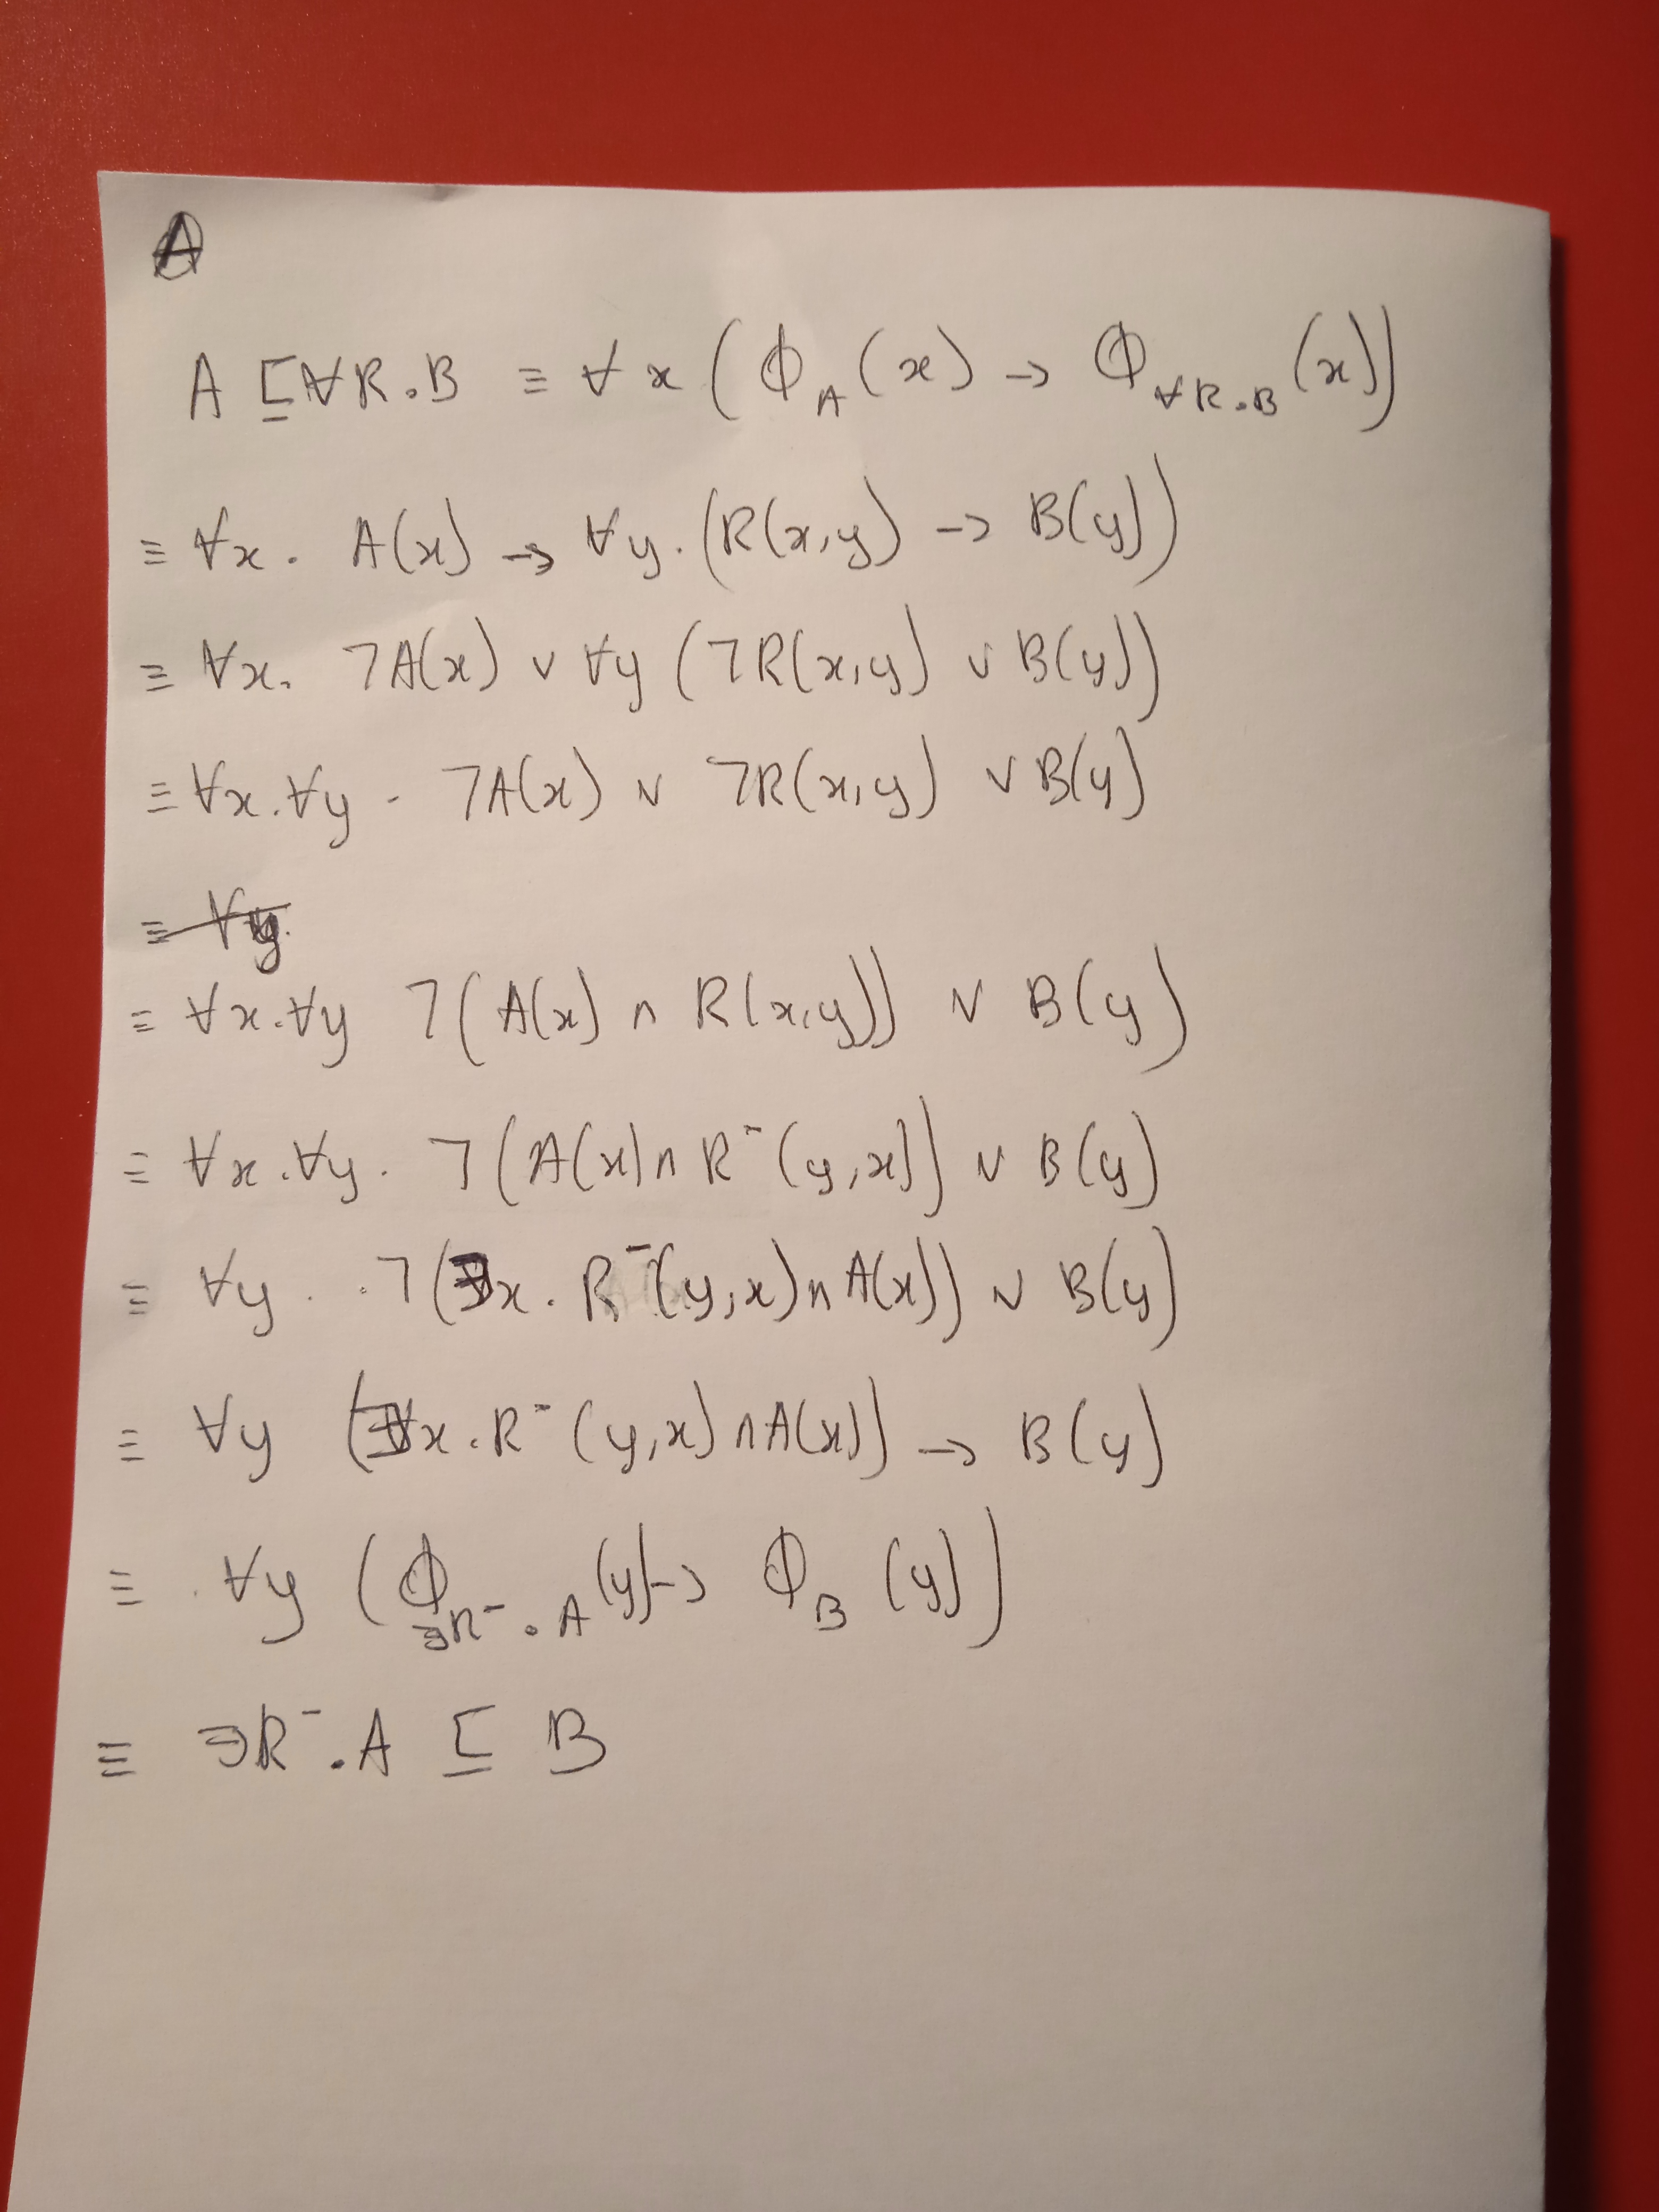 A
A ⊑ ∀R.B ≡ ∀x (Φ_A(x) → Φ_∀R.B(x))
≡ ∀x. A(x) → ∀y. (R(x,y) → B(y))
≡ ∀x. ¬A(x) ∨ ∀y (¬R(x,y) ∨ B(y))
≡ ∀x.∀y - ¬A(x) ∨ ¬R(x,y) ∨ B(y)
≡ ∀y.
≡ ∀x.∀y ¬(A(x) ∧ R(x,y)) ∨ B(y)
≡ ∀x.∀y. ¬(A(x) ∧ R⁻(y,x)) ∨ B(y)
≡ ∀y . . ¬(∃x. R⁻(y,x) ∧ A(x)) ∨ B(y)
≡ ∀y (∃x. R⁻(y,x) ∧ A(x)) → B(y)
≡ ∀y (Φ_∃R⁻.A(y) → Φ_B(y))
≡ ∃R⁻.A ⊑ B